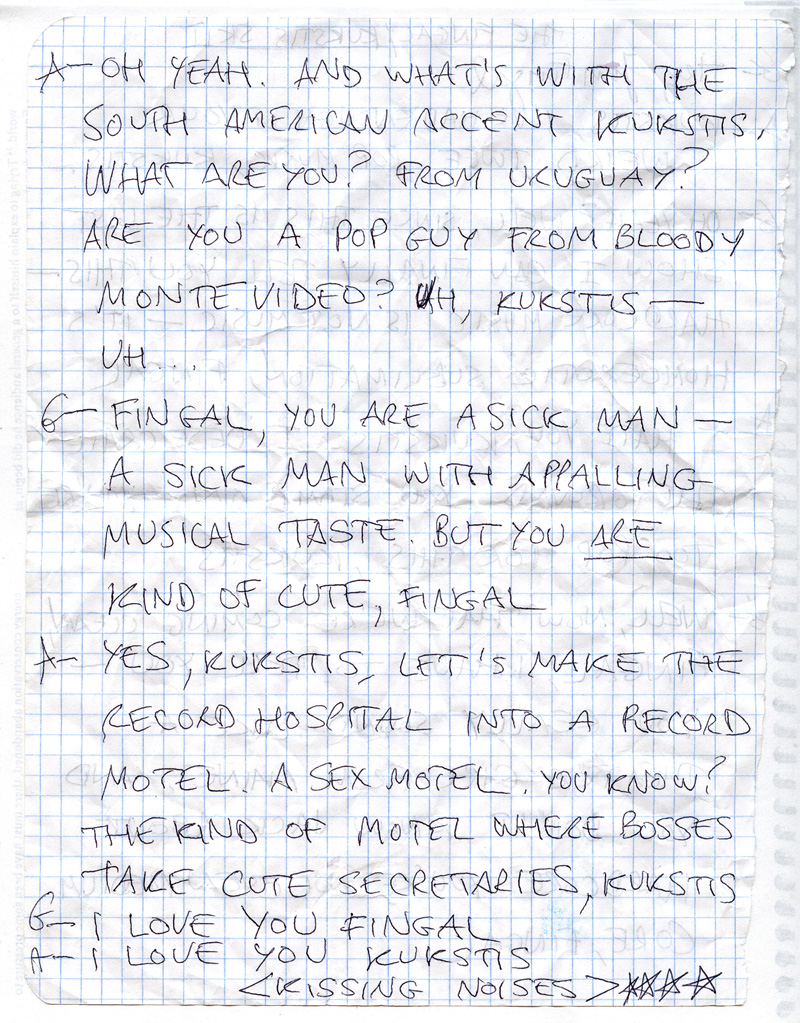 A- OH YEAH. AND WHAT'S WITH THE
SOUTH AMERICAN ACCENT KUKSTIS,
WHAT ARE YOU? FROM UKUGUAY?
ARE YOU A POP GUY FROM BLOODY
MONTE VIDEO? UH, KUKSTIS —
UH...
G- FINGAL, YOU ARE A SICK MAN —
A SICK MAN WITH APPALLING
MUSICAL TASTE. BUT YOU ARE
KIND OF CUTE, FINGAL
A- YES, KUKSTIS, LET'S MAKE THE
RECORD HOSPITAL INTO A RECORD
MOTEL. A SEX MOTEL. YOU KNOW?
THE KIND OF MOTEL WHERE BOSSES
TAKE CUTE SECRETARIES, KUKSTIS
G- I LOVE YOU FINGAL
A- I LOVE YOU KUKSTIS
<KISSING NOISES> ☆☆☆☆